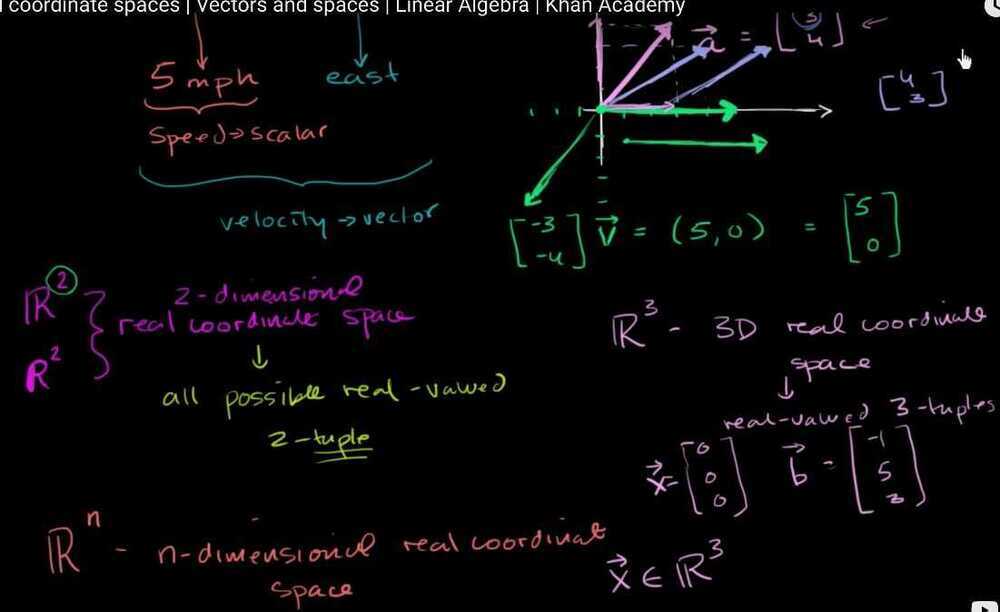 l coordinate spaces | Vectors and spaces | Linear Algebra | Khan Academy
5 mph
east
speed → scalar
velocity → vector
a⃗ = [3 4]
[4 3]
[-3 -4]
v⃗ = (5,0) = [5 0]
ℝ²
R²
2-dimensional
real coordinate space
↓
all possible real-valued
2-tuple
ℝ³ - 3D real coordinate
space
↓
real-valued 3-tuples
x⃗ = [0 0 0]
b⃗ = [-1 5 3]
x⃗ ∈ ℝ³
ℝⁿ - n-dimensional real coordinate
space